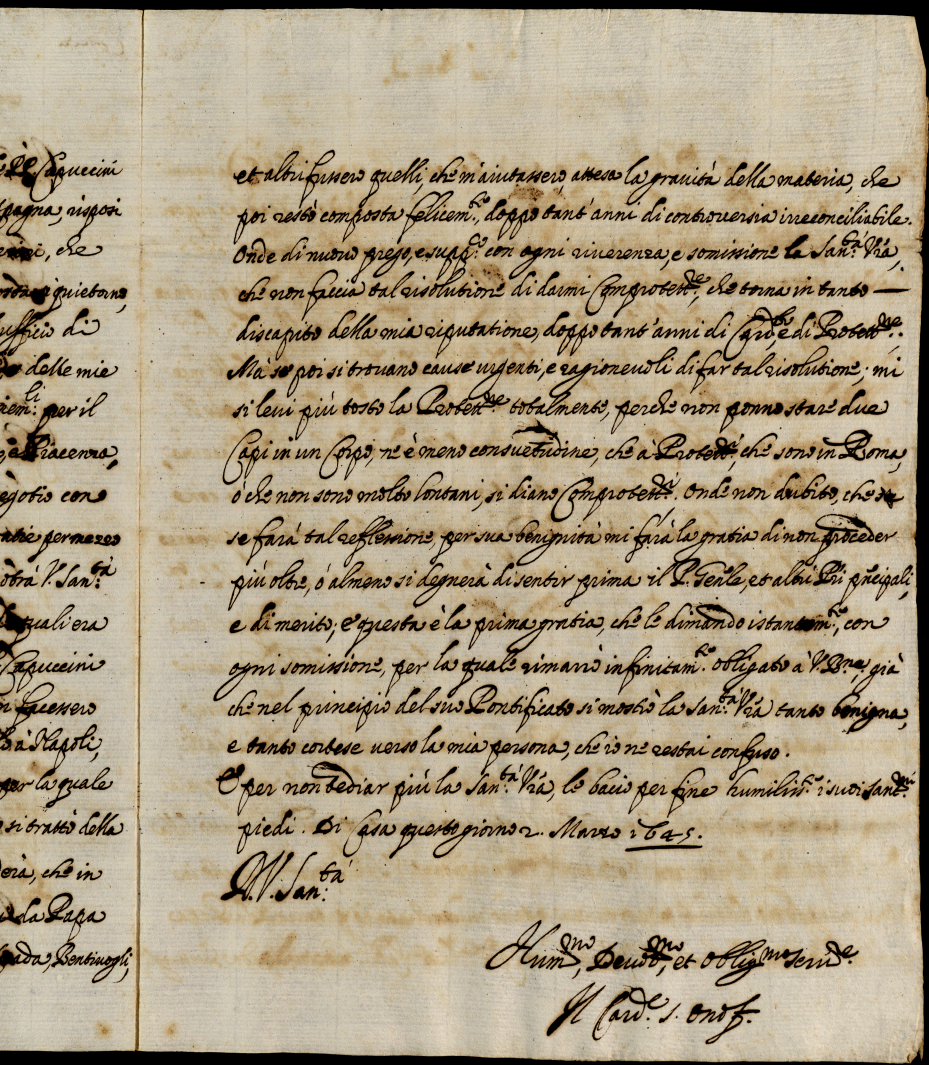 e PP. Capuccini
pagna, risposi
che
quietorno,
ufficio di
delle mie
li per il
Piacenza,
egotio con
per mezzo
otrà V. San.tà
quali era
Capuccini
facessero
à Napoli,
per la quale
si trattò della
erà, che in
da Papa
ada, Bentivogli,
et altri fussero quelli, che m'aiutassero, attesa la gravità della materia, che
poi restò composta felicem.te, doppo tant'anni di controversia irreconciliabile.
Onde di nuovo prego, e supp.co con ogni riverenza, e somissione la San.tà Vrà,
che non faccia tal risolutione di darmi Comprotett.re, che torna in tanto —
discapito della mia riputatione, doppo tant'anni di Card.le e di Protett.re.
Mà se poi si trovano cause urgenti, e ragionevoli di far tal risolutione, mi
si levi più tosto la Protett.ne totalmente, perche non ponno stare due
Capi in un Corpo, ne è meno consuetudine, che à Protett.ri, che sono in Roma,
ò che non sono molto lontani, si diano Comprotett.ri. Onde non dubito, che
se farà tal reflessione, per sua benignità mi farà la gratia di non proceder
più oltre, ò almeno si degnerà di sentir prima il P. Gen'le, et altri Pri pn'cipali,
e di merito, e questa è la prima gratia, che le dimando istantem.te, con
ogni somissione, per la quale rimarrò infinitam.te obligato à V. B.ne, già
che nel principio del suo Pontificato si mostrò la San.tà Vrà tanto benigna,
e tanto cortese verso la mia persona, che io ne restai confuso.
E per non tediar più la San.tà Vrà, le bacio per fine humiliss.te i suoi sant.mi
piedi. Di Casa questo giorno 2. Marzo 1645.
D. V. San.tà
Hum.mo, Devot.mo, et oblig.mo serv.re
Il Card.le S. Onof.